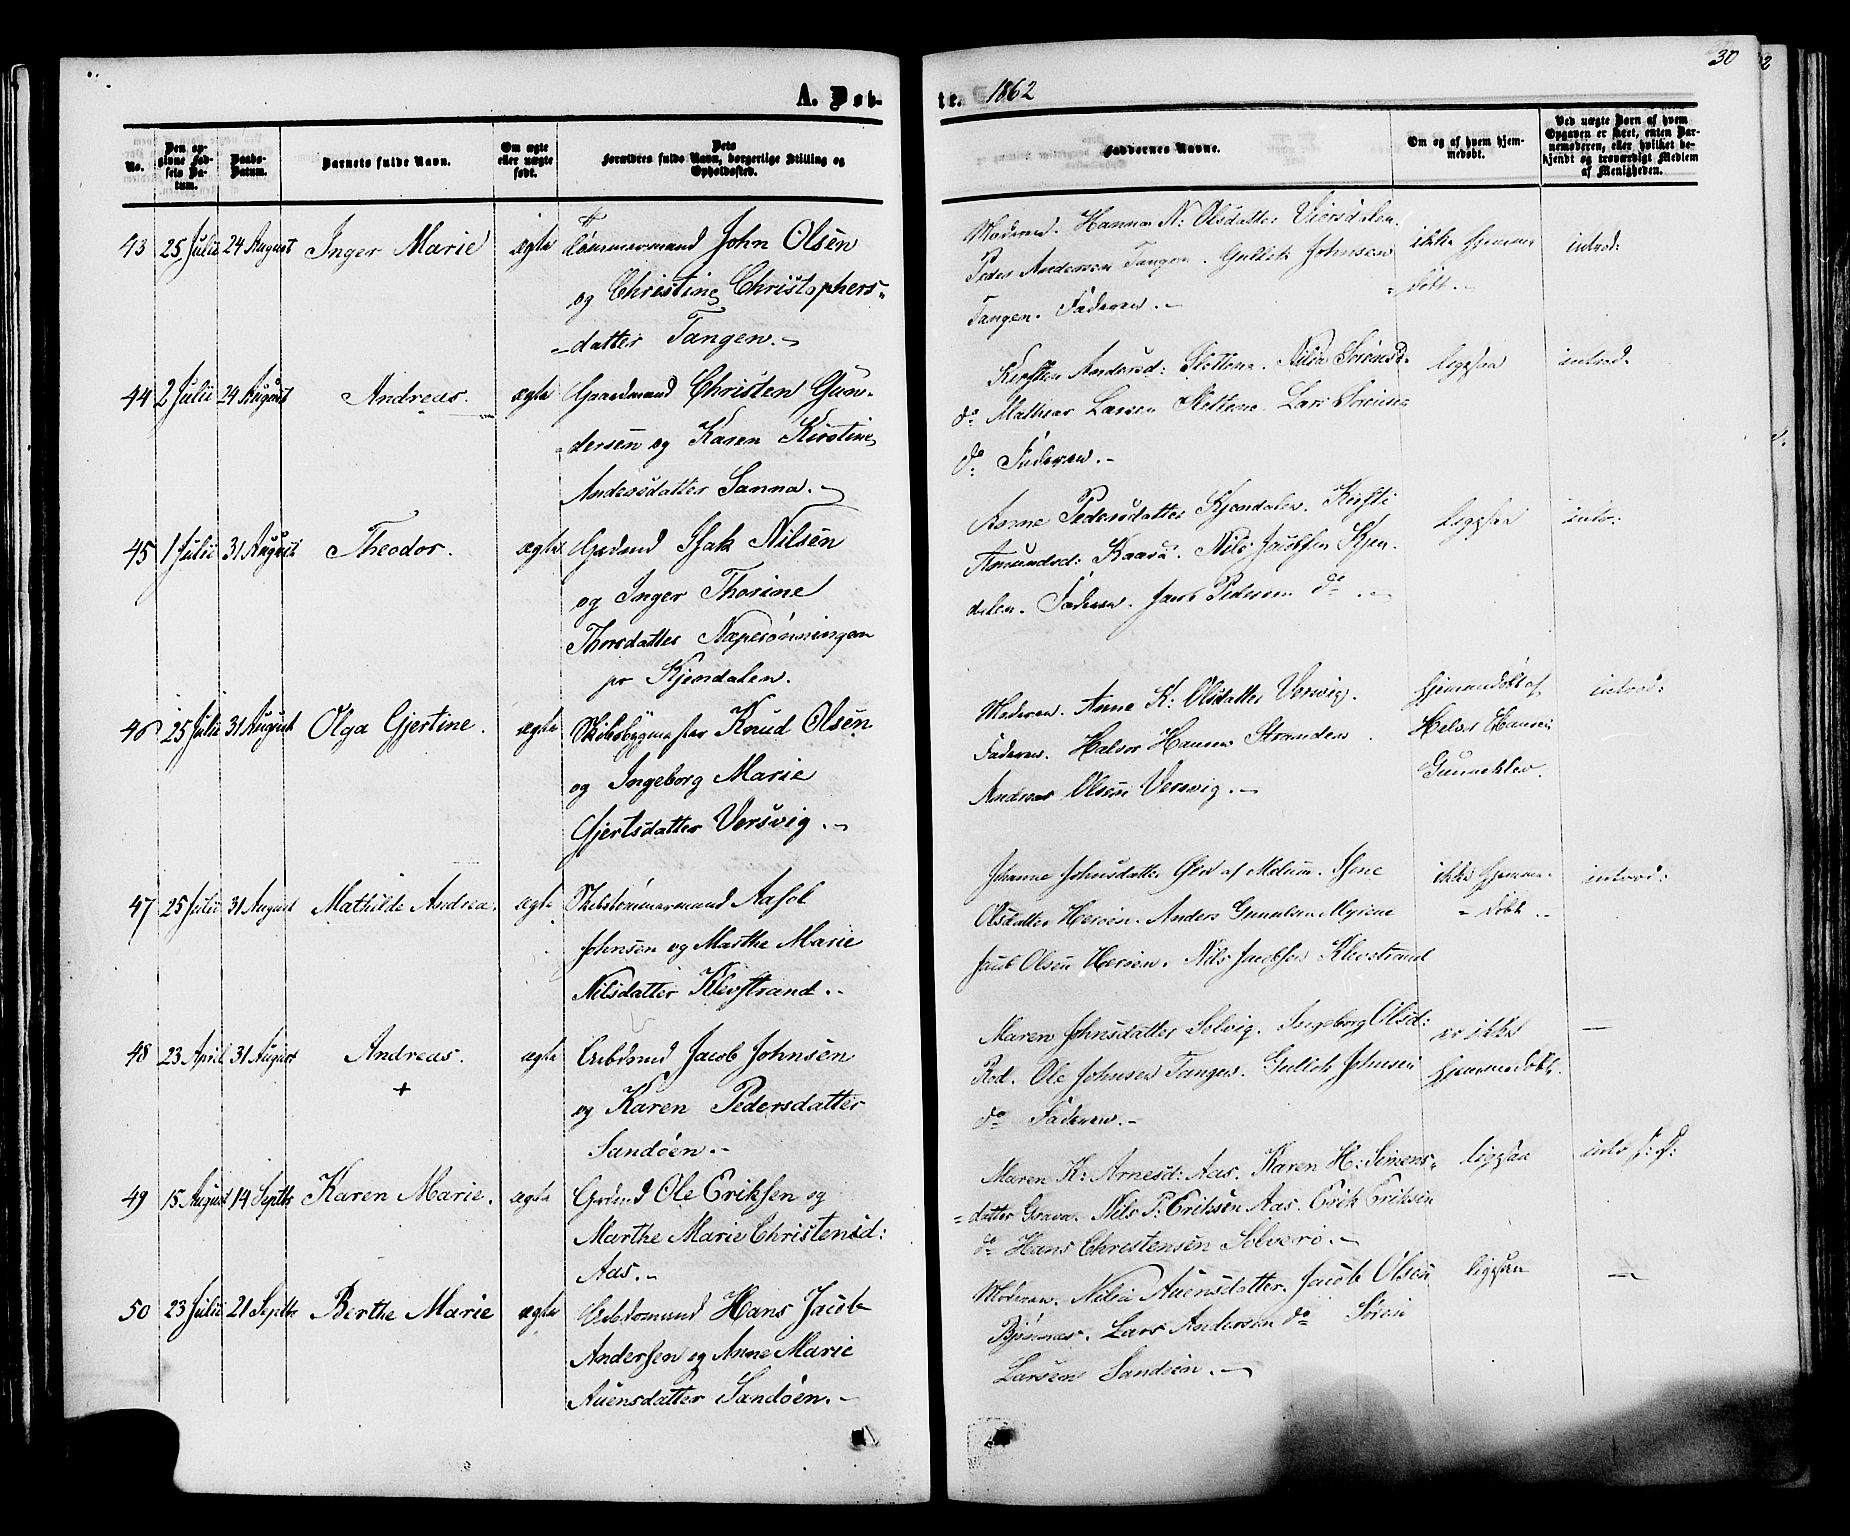 30
A. Døb-
te. 1862
No.
Den op-
givne Fød-
sels Da-
tum.
Daabs-
Datum.
Barnets fulde Navn.
Om ægte
eller uægte
født.
Dets
Forældres fulde Navn, borgerlige Stilling og
Opholdssted.
Faddernes Navne.
Om og af hvem hjem-
medøbt.
Ved uægte Børn af hvem
Opgaven er skeet, enten Bar-
nemoderen, eller hvilket be-
kjendt og troværdigt Medlem
af Menigheden.
43 25 Julii 24 August Inger Marie ægte Tömmermand John Olsen
og Christine Christophers-
datter Tangen.
Moderen. Hanna N: Olsdatter Viersdalen.
Peder Andersen Tangen. Gullik Johnsen
Tangen. Faderen.
ikke hjemme
døbt.
introd:
44 2 Julii 24 August Andreas. ægte Gaardmand Christen Gun-
dersen og Karen Kirstine
Andersdatter Sanna.
Kirsten Andersd: Slettene. Nilia Sörensd:
do Mathias Larsen Slettene. Lars Sörensen
do: Faderen.
ligesaa
introd.
45 1 Julii 31 August Theodor. ægte Gdmd Isak Nilsen
og Inger Thorine
Thorsdatter Næperönningen
pr Kjendalen.
Anne Pedersdatter Kjendalen. Kirsti
Amundsd: Kaasa. Nils Jacobsen Kjen-
dalen. Faderen. Jacob Pedersen do.
ligesaa
intr:
46 25 Julii 31 August Olga Gjertine. ægte Skibsbygmester Knud Olsen
og Ingeborg Marie
Gjertsdatter Versvig.
Moderen. Anne K: Olsdatter Versvig.
Faderen. Halvor Hansen Stranden.
Andreas Olsen Versvig.
hjemmedöbt af
Halvor Hansen
Gunneklev.
introd:
47 25 Julii 31 August Mathilde Andrea. ægte Skibstömmermand Aasol
Johnsen og Marthe Marie
Nilsdatter Klevstrand.
Johanne Johnsdatter af Melum.
Olsdatter Heröen. Anders Gunulsen Myrene
Jacob Olsen Heröen. Nils Jacobsen Klevstrand
ikke hjemme-
döbt.
introd:
48 23 April 31 August Andreas. ægte Arbdsmd Jacob Johnsen
+
og Karen Pedersdatter
Sandöen.
Maren Johnsdatter Solvig. Ingeborg Olsd:
Rod. Ole Johnsen Tangen. Gullik Johnsen
do Faderen.
er ikke
hjemmedöbt.
49 15 August 14 Septbr Karen Marie. ægte Grdmd Ole Eriksen og
Marthe Marie Christensd:
Aas.
Maren K: Arnesd: Aas. Karen H: Simens-
datter Grava. Nils P: Eriksen Aas. Erik Eriksen
do Hans Christensen Solverö.
ligesaa
50 23 Julii 21 Septbr Berthe Marie ægte Arbdsmand Hans Jacob
Andersen og Anne Marie
Auensdatter Sandöen.
Moderen. Nilia Auensdatter. Jacob Olsen
Bjönnes. Lars Andersen do Sören
Larsen Sandöen.
ligesaa